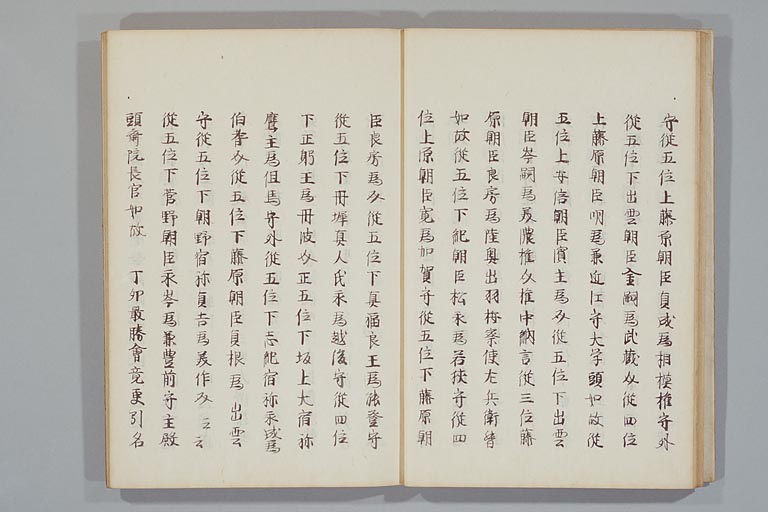 守從五位上藤原朝臣貞成爲相模權守外
從五位下出雲朝臣全嗣爲武藏介從四位
上藤原朝臣明爲兼近江守大学頭如故從
五位上安倍朝臣濱主爲介從五位下出雲
朝臣岑嗣爲美濃權介權中納言從三位藤
原朝臣良房爲陸奥出羽按察使左兵衛督
如故從五位下紀朝臣松永爲若狹守從四
位上源朝臣寛爲加賀守從五位下藤原朝
臣良房爲介從五位下真福良王爲能登守
從五位下丹墀真人氏永爲越後守從四位
下正躬王爲丹波介正五位下坂上大宿祢
鷹主爲但馬守外從五位下志紀宿祢永成爲
伯耆介從五位下藤原朝臣貞根爲出雲
守從五位下朝野宿祢貞吉爲美作介云云
從五位下菅野朝臣永岑爲兼豊前守主殿
頭齋院長官如故 丁卯最勝會竟更引名